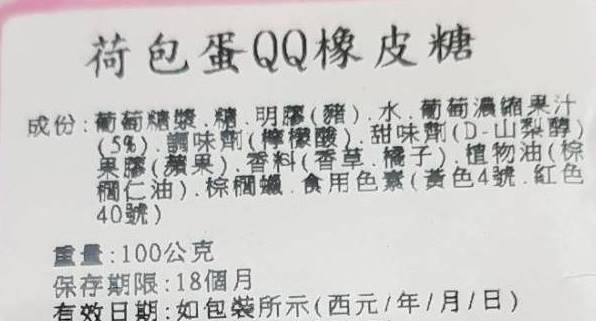 荷包蛋QQ橡皮糖
成份:葡萄糖漿.糖.明膠(豬).水.葡萄濃縮果汁
(5%).調味劑(檸檬酸).甜味劑(D-山梨醇)
果膠(蘋果).香料(香草.橘子).植物油(棕
櫚仁油).棕櫚蠟.食用色素(黃色4號.紅色
40號)
重量:100公克
保存期限:18個月
有效日期:如包裝所示(西元/年/月/日)